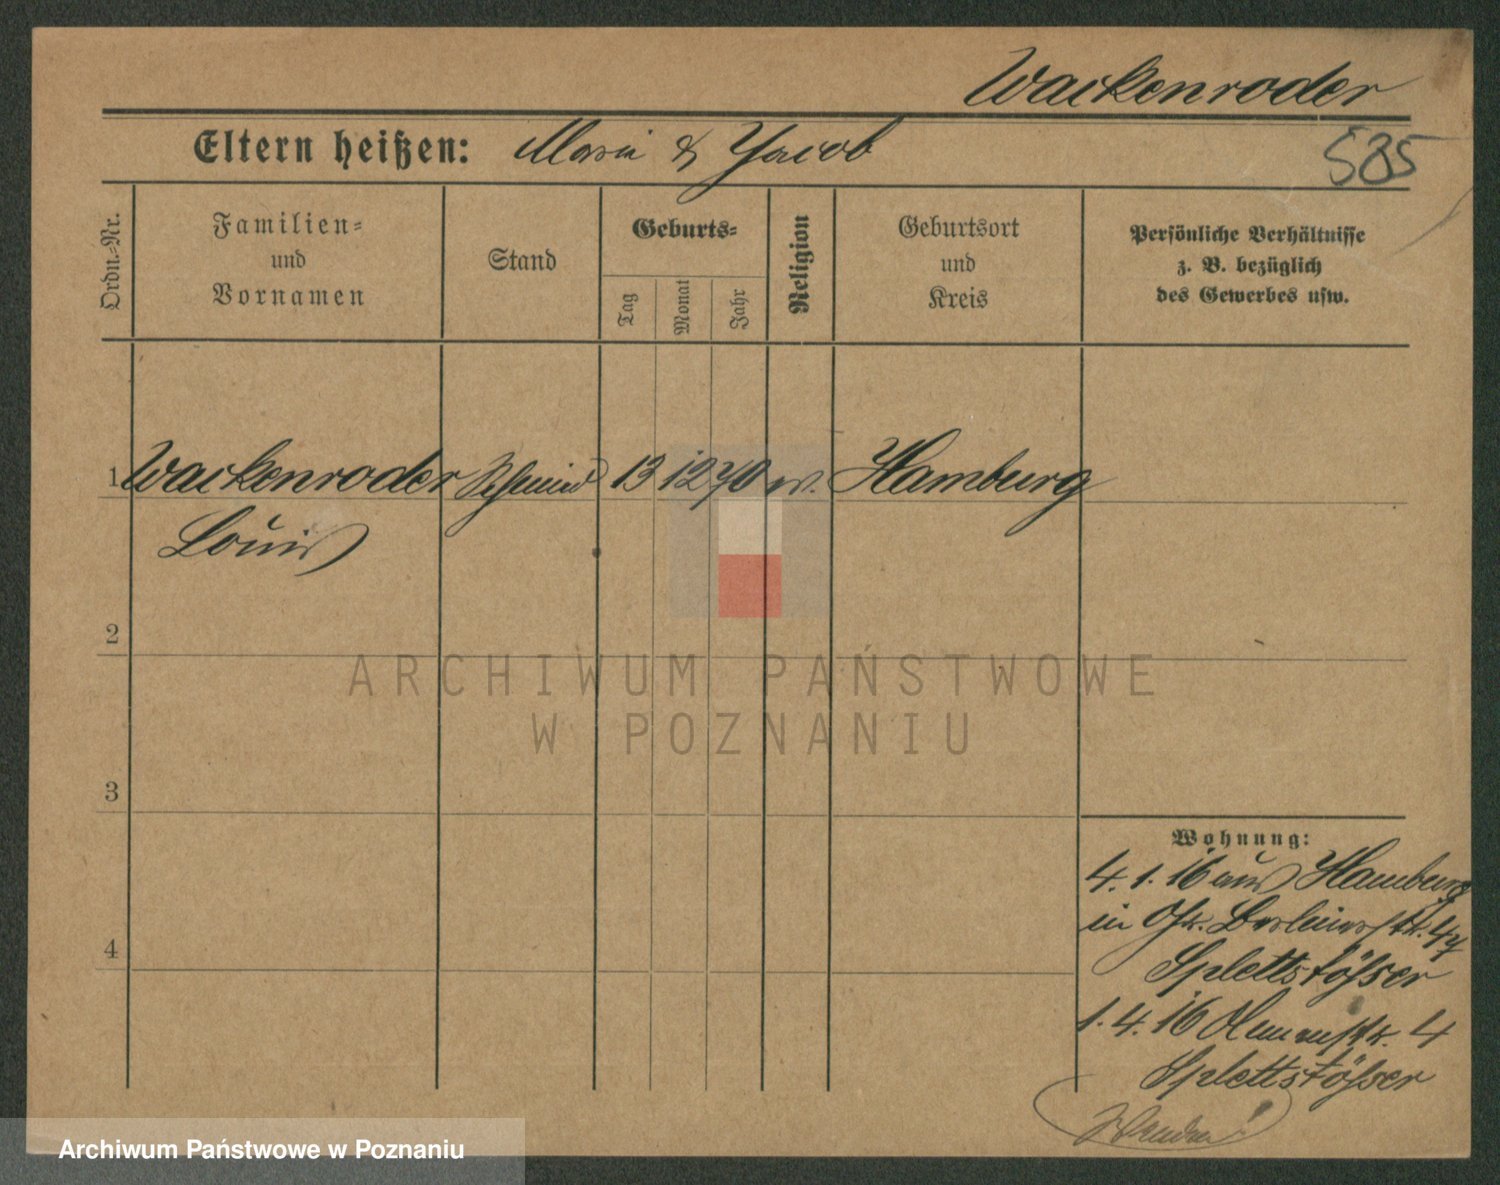 Wackenroder
Eltern heißen: Maria & Jacob
585
Ordn.-Nr.
Familien-
und
Vornamen
Stand
Geburts-
Tag
Monat
Jahr
Religion
Geburtsort
und
Kreis
Persönliche Verhältnisse
z. B. bezüglich
des Gewerbes usw.
1 Wackenroder Schmied 13 12 70 ev. Hamburg
Louis
2
3
4
Wohnung:
4. 1. 16 aus Hamburg
in Berlinerstr. 47
Splettstößer
1. 4. 16 4
Splettstößer
ARCHIWUM PAŃSTWOWE
W POZNANIU
Archiwum Państwowe w Poznaniu